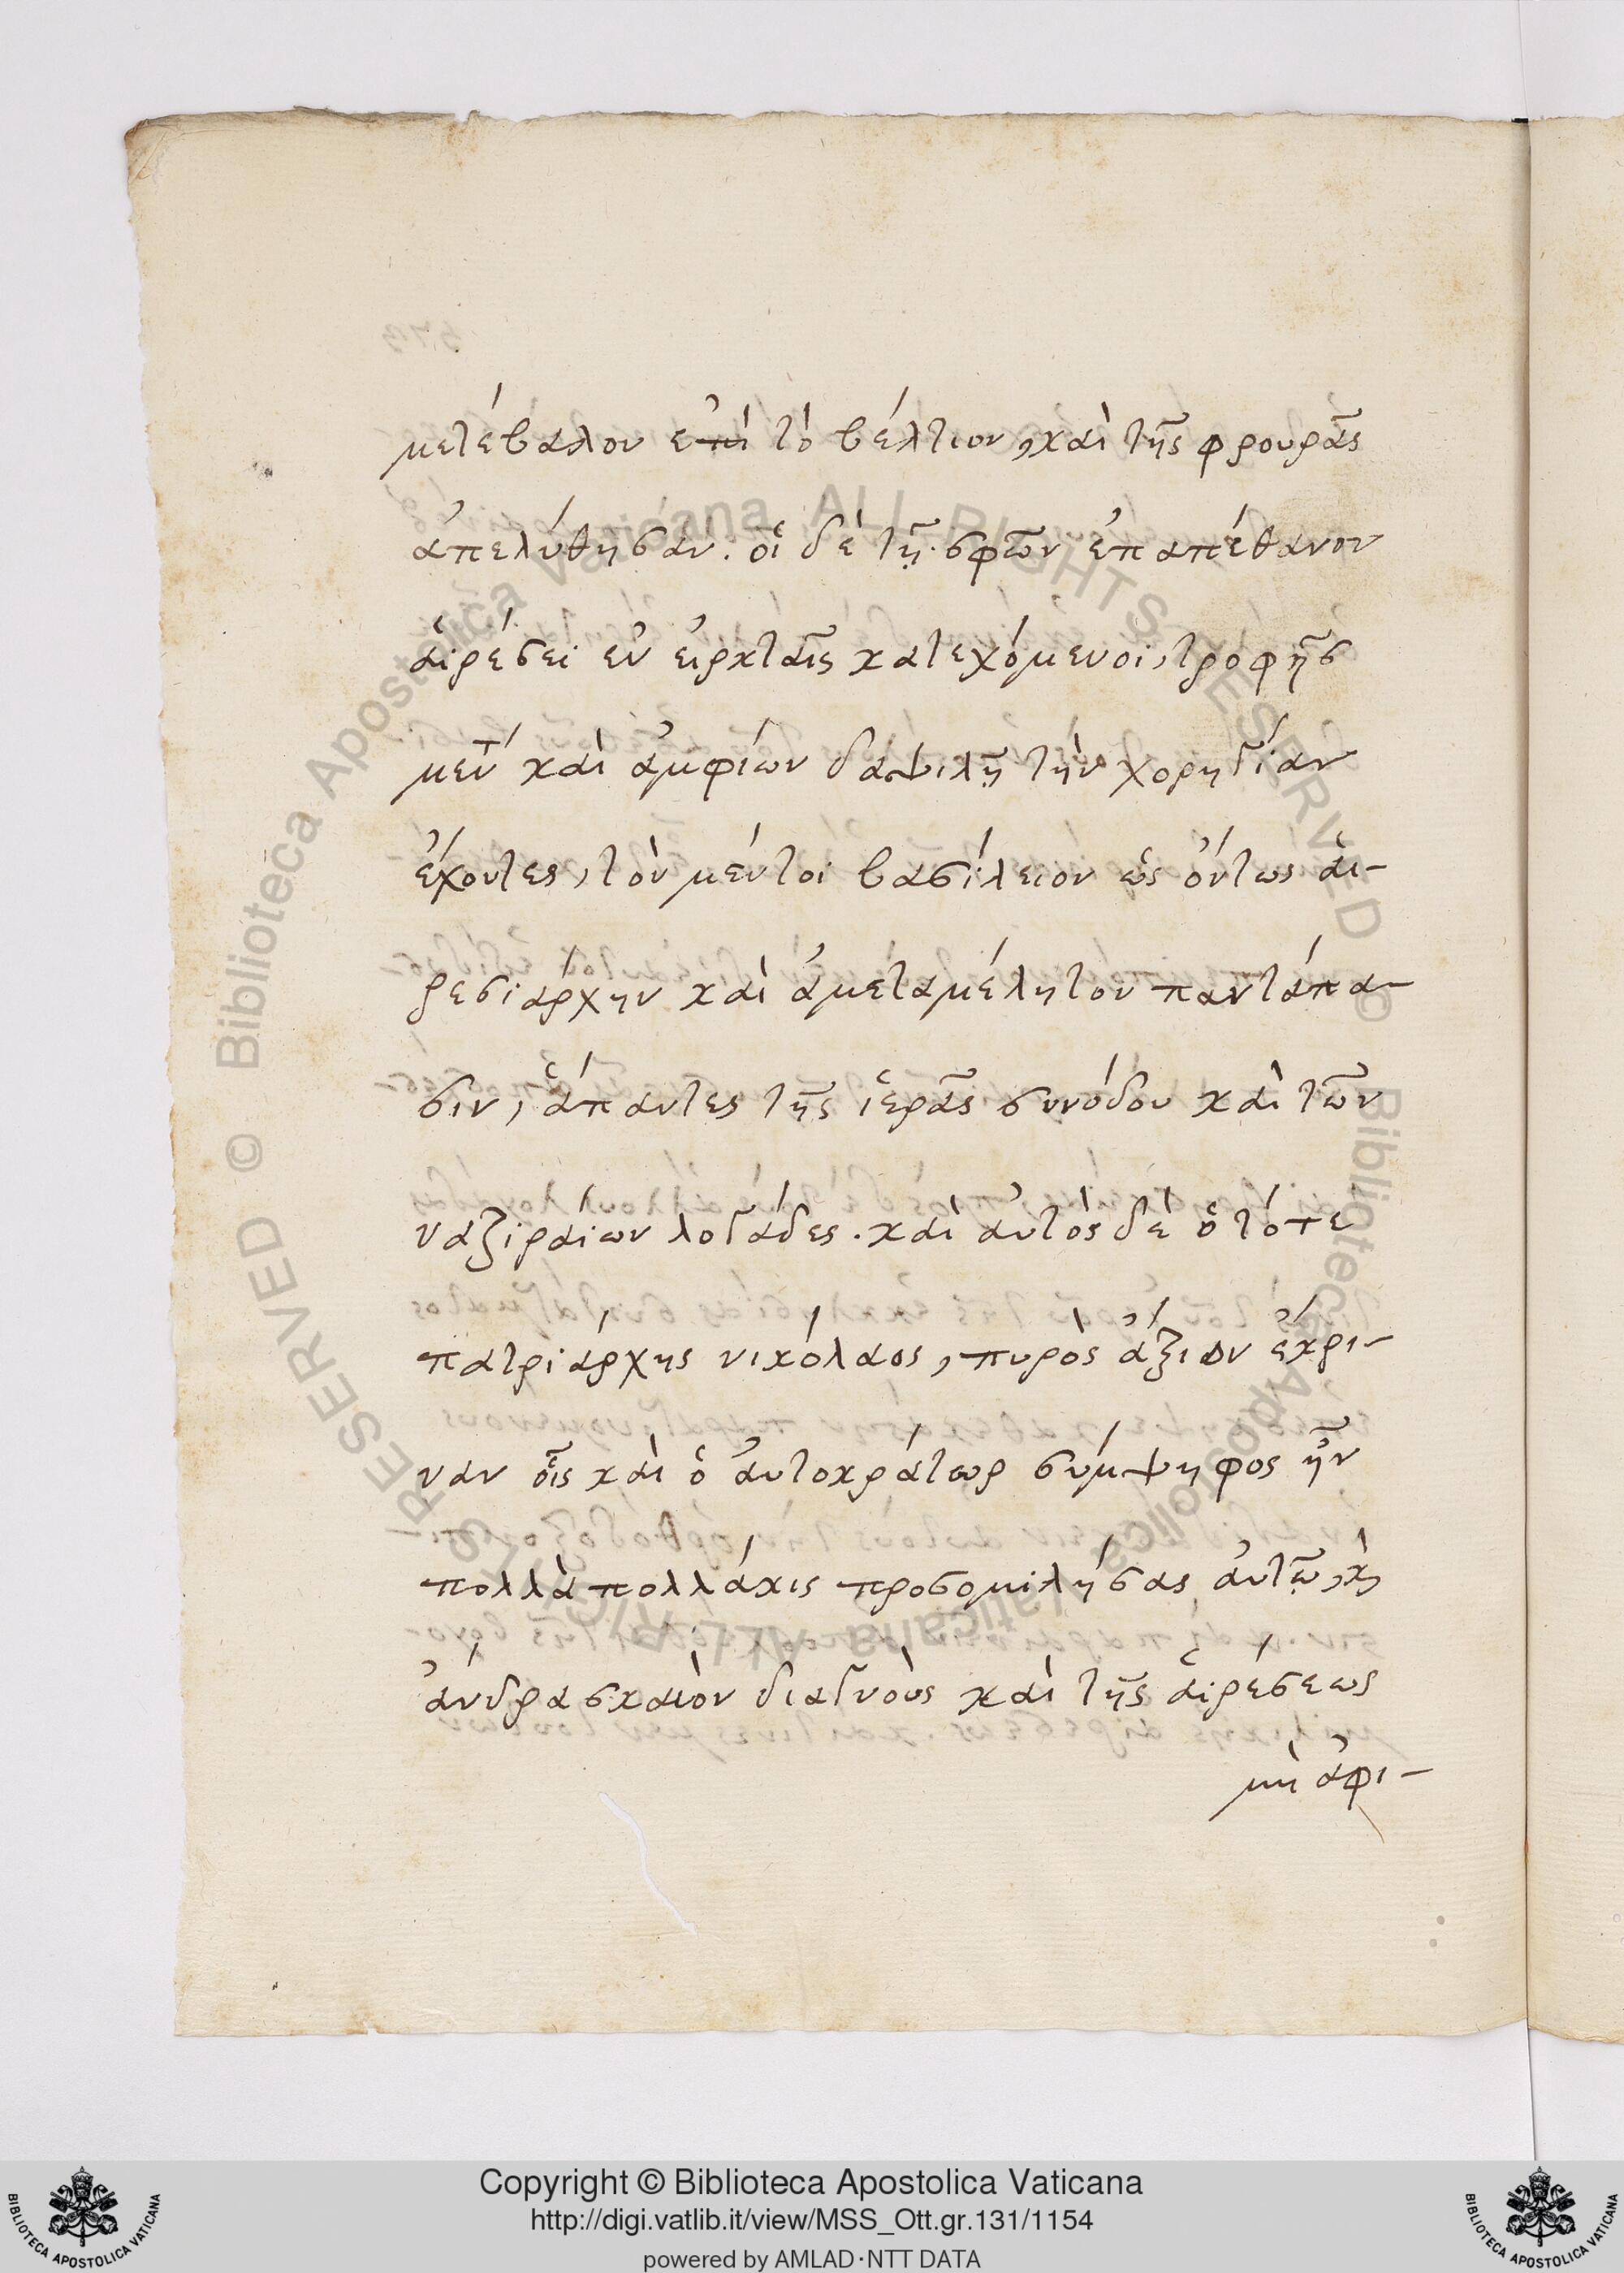 μετέβαλον επὶ τὸ βέλτιον, καὶ τῆς φρουρᾶς
ἀπελύθησαν. οἱ δὲ τῇ σφῶν ἐπαπέθανον
αἱρέσει ἐν εἱρκταῖς κατεχόμενοι, τροφῆς
μέν καὶ ἀμφίων δαψιλῆ τὴν χορηγίαν
ἔχοντες, τὸν μέντοι βασίλειον ὡς ὄντως αἱ-
ρεσιάρχην καὶ ἀμεταμέλητον παντάπα-
σιν, ἅπαντες τῆς ἱερᾶς συνόδου καὶ τῶν
ναζιραίων λογάδες. καὶ αὐτὸς δὲ ὁ τότε
πατριάρχης νικόλαος, πυρὸς ἄξιον ἔκρι-
ναν οἷς καὶ ὁ αὐτοκράτωρ σύμψηφος ἦν
πολλὰ πολλάκις προσομιλήσας αὐτῷ, κ̀
ἄνδρα σκαιὸν διαγνοὺς καὶ τῆς αἱρέσεως
μὴ ἀφι-
Copyright © Biblioteca Apostolica Vaticana
http://digi.vatlib.it/view/MSS_Ott.gr.131/1154
powered by AMLAD·NTT DATA
BIBLIOTECA APOSTOLICA VATICANA
BIBLIOTECA APOSTOLICA VATICANA
Biblioteca Apostolica Vaticana ALL RIGHTS RESERVED ©
Biblioteca Apostolica Vaticana ALL RIGHTS RESERVED ©